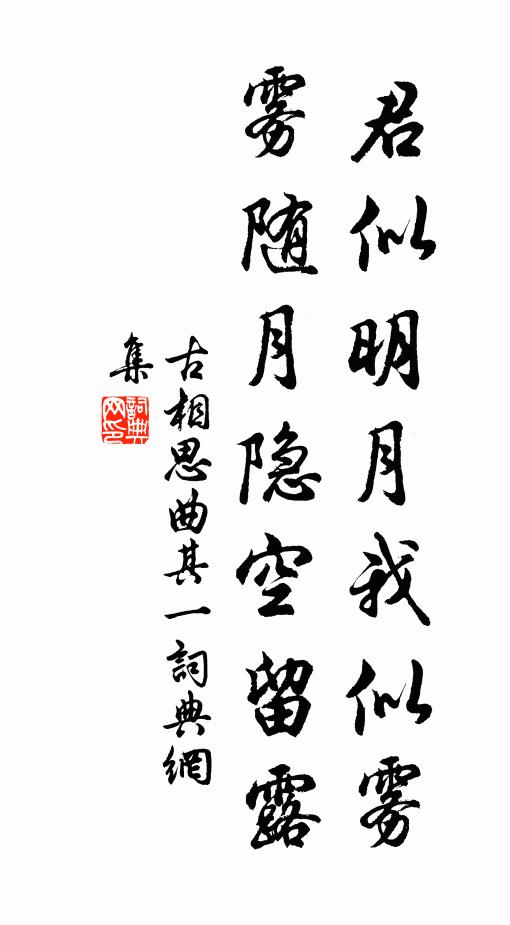 君似明月我似雾
雾随月隐空留露
古相思曲其一詞典網
集
詞典网印